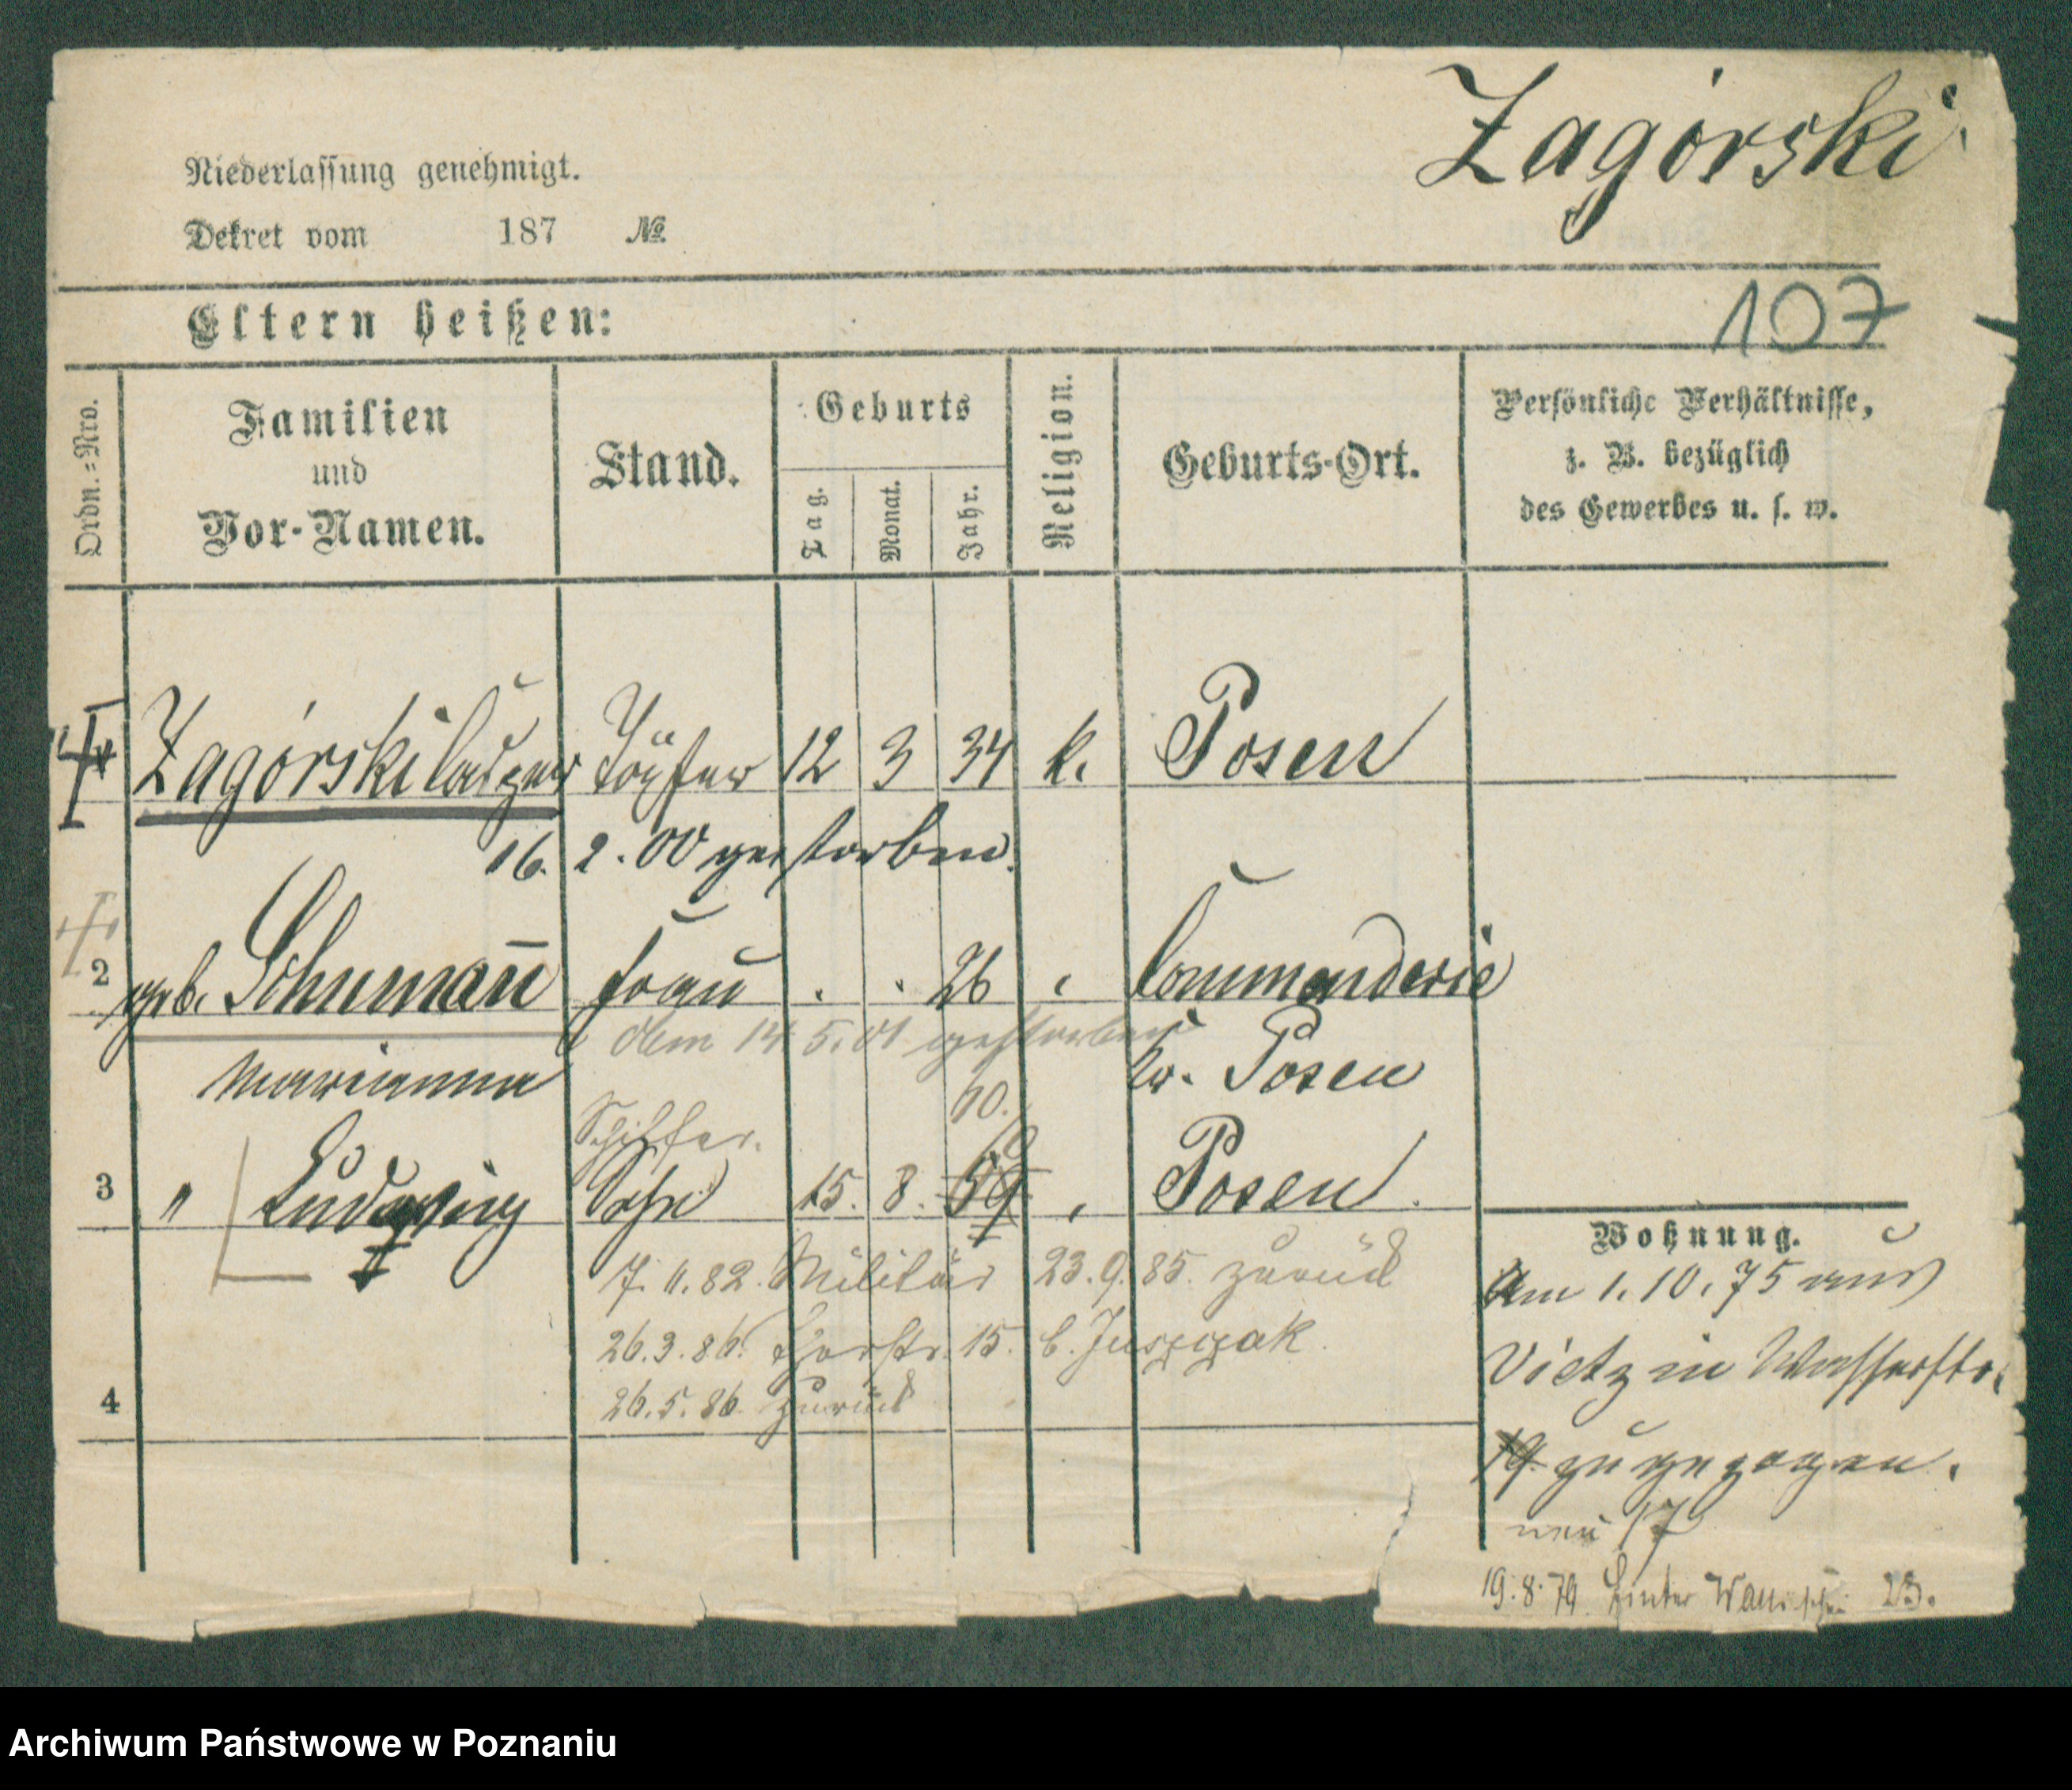 Zagórski
Niederlassung genehmigt.
Dekret vom 187 №
Eltern heißen:
107
Ordn.=Nro.
Familien
und
Vor-Namen.
Stand.
Geburts
Tag.
Monat.
Jahr.
Religion.
Geburts-Ort.
Persönliche Verhältnisse,
z. B. bezüglich
des Gewerbes u. s. w.
Zagórski Töpfer 12 3 34 k. Posen
16. 2. 00 gestorben.
2 geb. Schuman̄ Frau . . 26 Commenderie
den 14 5. 01 gestorben
Marianna Kr. Posen
60.
Schiffer.
3 " Ludwig Sohn 15. 8. 59 Posen
II
7. 11. 82. Militär 23. 9. 85. zurück
26. 3. 86. 15. b. Juszczak
26. 5. 86. zurück
4
Wohnung.
Am 1. 10. 75 aus
Vietz in Wasserstr.
19. zugezogen.
neu 17
19. 8. 79. Hinter Wallischei 23.
Archiwum Państwowe w Poznaniu